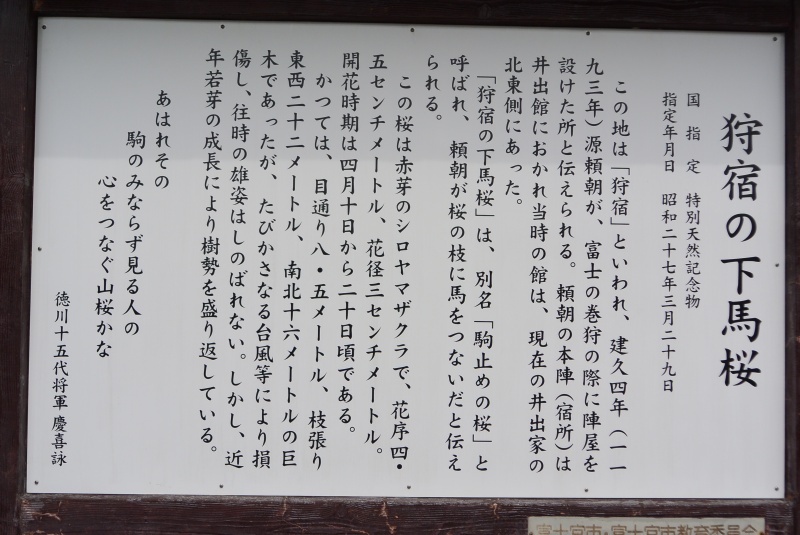 狩宿の下馬桜
国指定 特別天然記念物
指定年月日 昭和二十七年三月二十九日
この地は「狩宿」といわれ、建久四年(一一
九三年)源頼朝が、富士の巻狩の際に陣屋を
設けた所と伝えられる。頼朝の本陣(宿所)は
井出館におかれ当時の館は、現在の井出家の
北東側にあった。
「狩宿の下馬桜」は、別名「駒止めの桜」と
呼ばれ、頼朝が桜の枝に馬をつないだと伝え
られる。
この桜は赤芽のシロヤマザクラで、花序四・
五センチメートル、花径三センチメートル。
開花時期は四月十日から二十日頃である。
かつては、目通り八・五メートル、枝張り
東西二十二メートル、南北十六メートルの巨
木であったが、たびかさなる台風等により損
傷し、往時の雄姿はしのばれない。しかし、近
年若芽の成長により樹勢を盛り返している。
あはれその
駒のみならず見る人の
心をつなぐ山桜かな
徳川十五代将軍 慶喜詠
富士宮市・富士宮市教育委員会